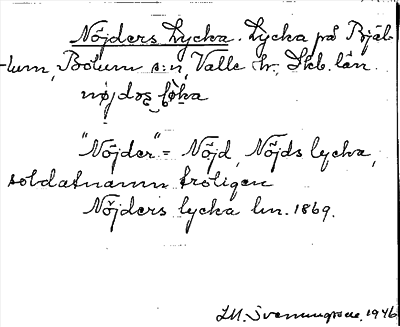 Nöjders Lycka. Lycka på Bjäl-
lum, Bolum s:n, Valle hr., Skb. län.
"Nöjder" = Nöjd, Nöjds lycka,
soldatnamn troligen
Nöjders lycka lm. 1869.
1946